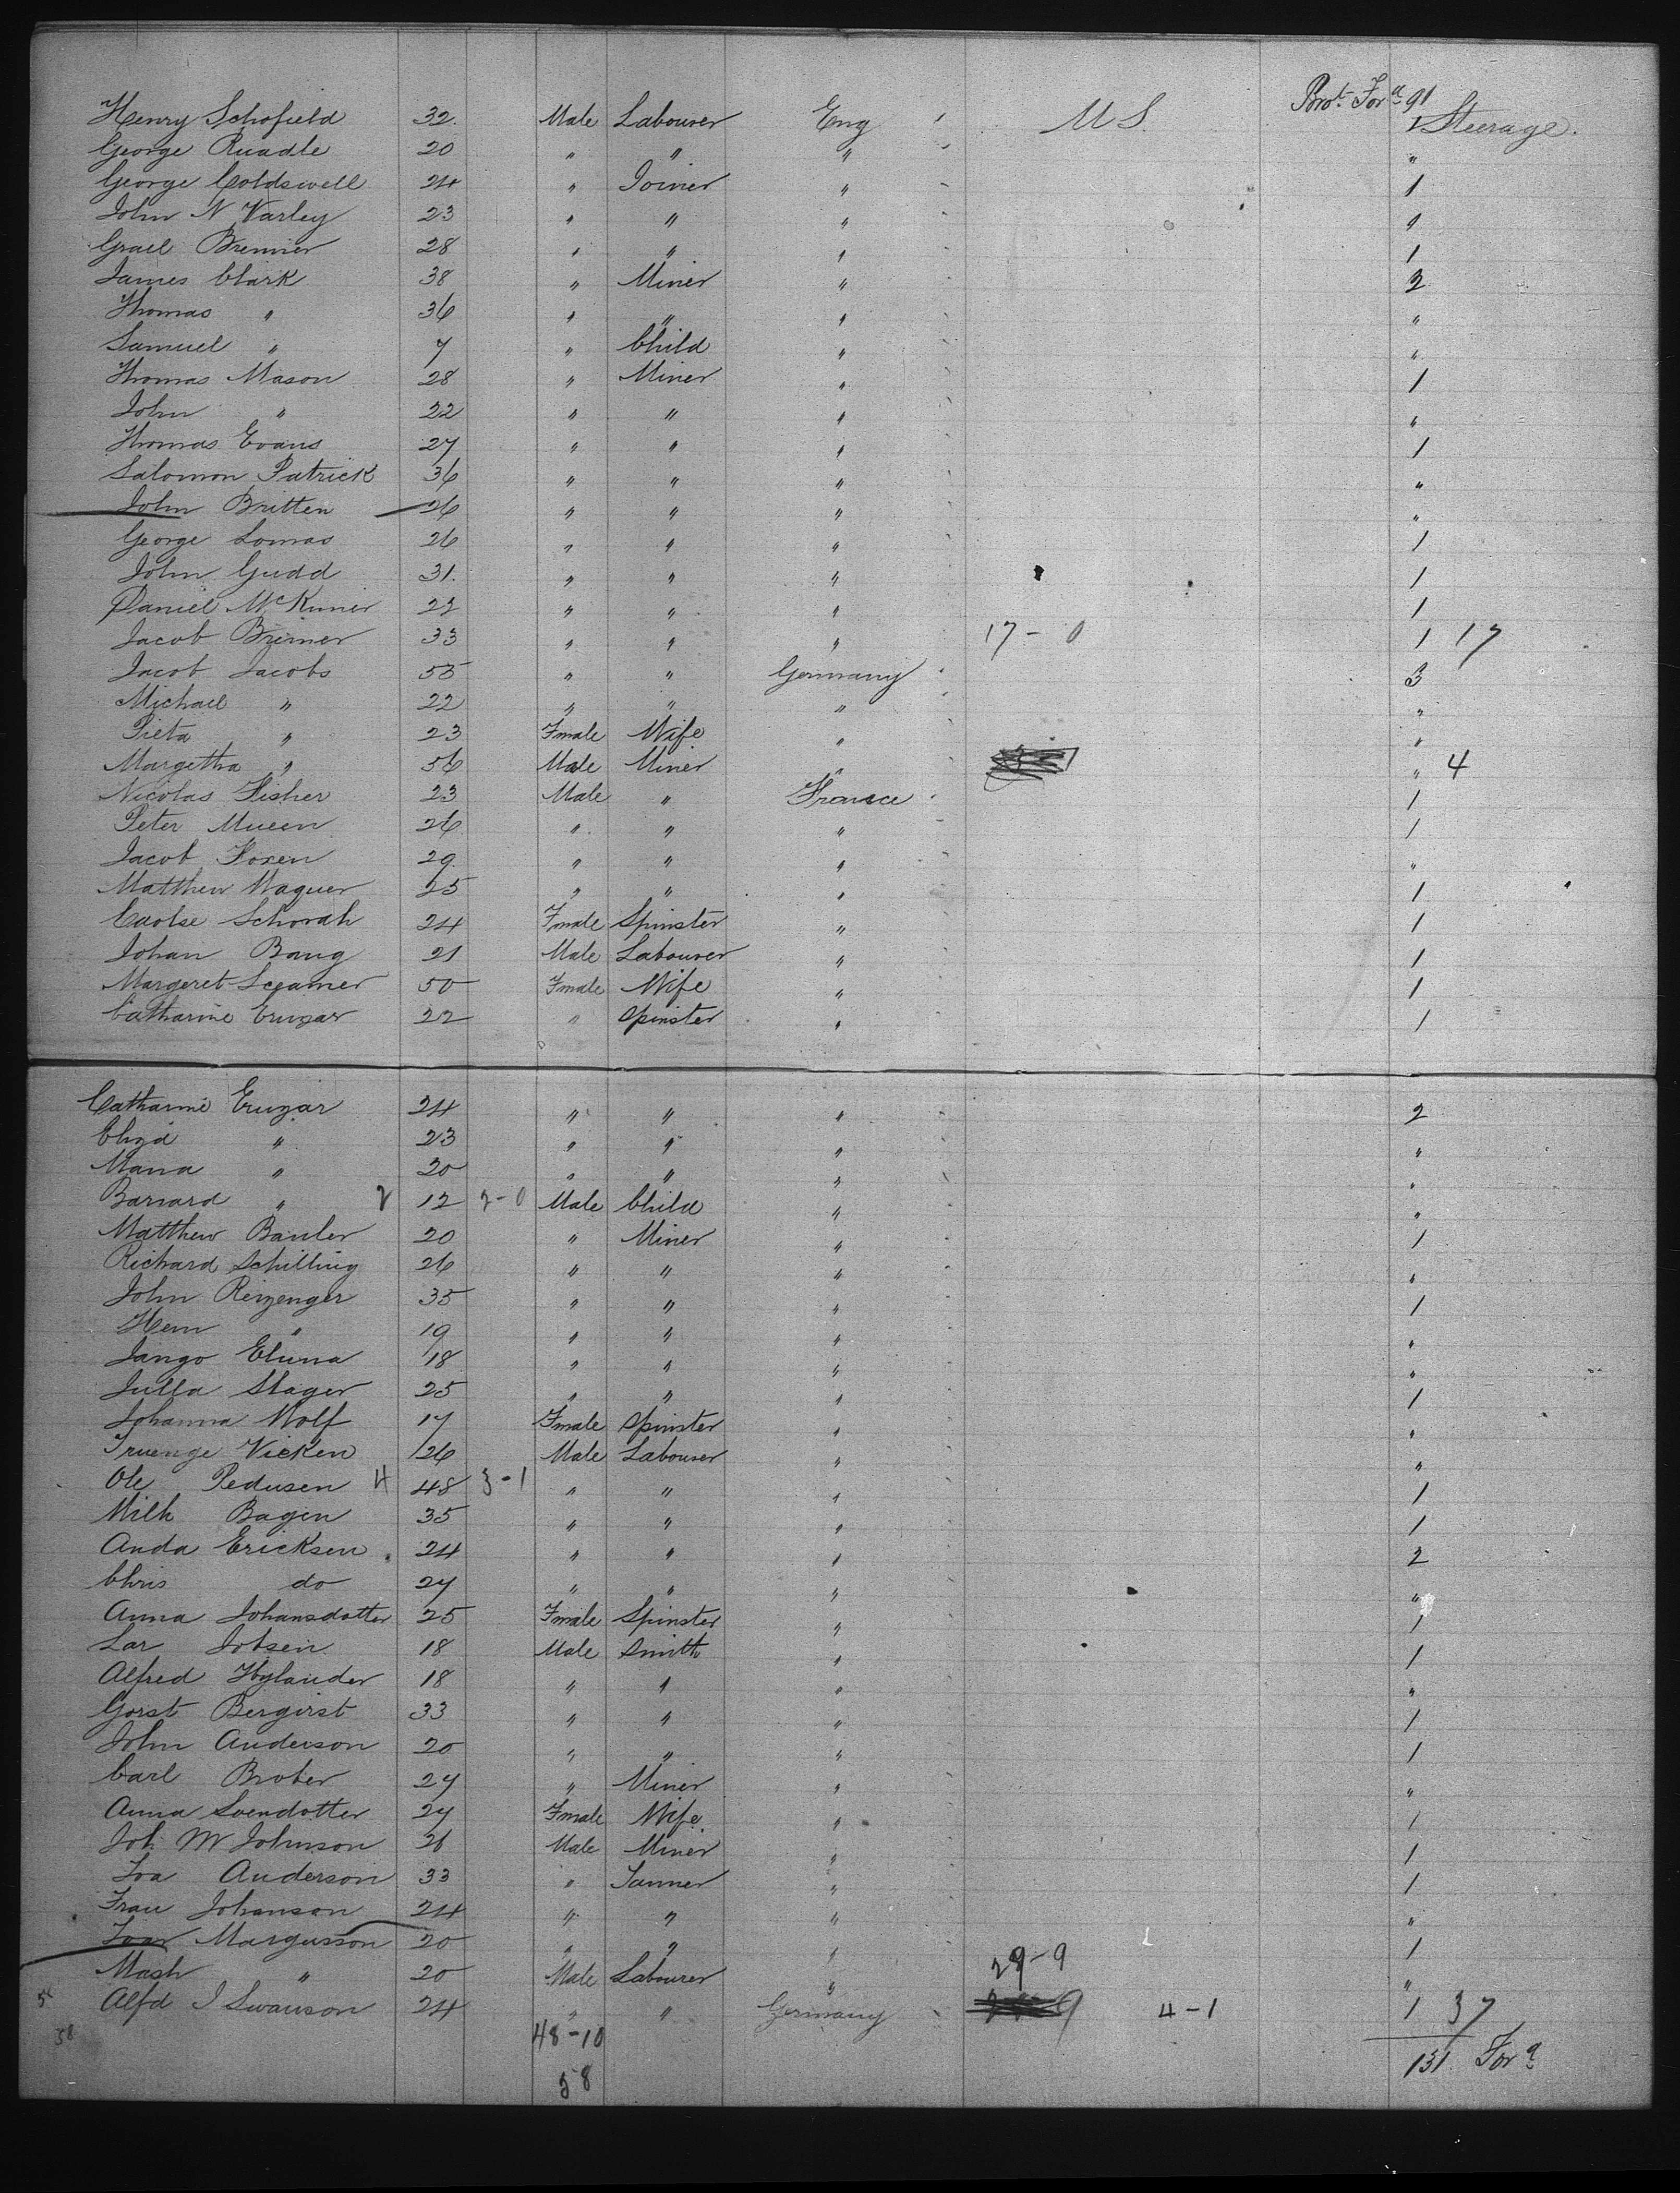 Brot Ford 91
Henry Schofield 32 Male Labourer Eng U S. 1 Steerage.
George Ruadle 20 " " " "
George Coldswell 24 " Joiner " 1
John N Varley 23 " " " "
Grael Brenner 28 " " " 1
James Clark 38 " Miner " 2
Thomas " 36 " " " "
Samuel " 7 " Child " "
Thomas Mason 28 " Miner " 1
John " 22 " " " "
Thomas Evans 27 " " " 1
Salomon Patrick 36 " " " "
John Britten 26 " " " "
George Lomas 26 " " " 1
John Gudd 31 " " " 1
Daniel McKinner 22 " " " 1
Jacob Brimer 33 " " " 17 - 0 1 17
Jacob Jacobs 55 " " Germany 3
Michael " 22 " " " "
Pieta " 23 Fmale Wife " "
Margetha " 56 Male Miner " " 4
Nicolas Fisher 23 Male " France 1
Peter Mueen 26 " " " 1
Jacob Foxen 29 " " " "
Matthew Waguer 25 " " " 1
Caolse Schorah 24 Fmale Spinster " 1
Johan Bang 21 Male Labourer " 1
Margeret Scamer 50 Fmale Wife " 1
Catharine Eruzar 22 " Spinster " 1
Catharine Eruzar 24 " " " 2
Eliza " 23 " " " "
Maria " 20 " " " "
Barnard " 2 12 2-0 Male Child " "
Matthew Bauler 20 " Miner " 1
Richard Schilling 26 " " " "
John Reizenger 35 " " " 1
Hein " 19 " " " "
Jango Eluna 18 " " " "
Julla Stager 25 " " " 1
Johanna Wolf 17 Fmale Spinster " "
Truenge Vicken 26 Male Labourer " "
Ole Pedusen 4 48 3-1 " " " 1
Milh Bagen 35 " " " 1
Anda Ericksen 24 " " " 2
Chris do 27 " " " "
Anna Johansdotter 25 Fmale Spinster " 1
Lar Jobsen 18 Male Smith " 1
Alfred Hylander 18 " " " "
Gorst Bergirst 33 " " " 1
John Anderson 20 " " " 1
Carl Brober 27 " Miner " "
Anna Svendotter 27 Fmale Wife " 1
Joh. W Johnson 26 Male Miner " 1
Iva Anderson 33 " Tanner " 1
Frau Johanson 24 " " " "
Ivar Margusson 20 " " " 1
Mash " 20 Male Labourer " 29-9 "
Alfd J Swanson 24 " " Germany 4-1 1 37
48-10 131 Ford
58 58